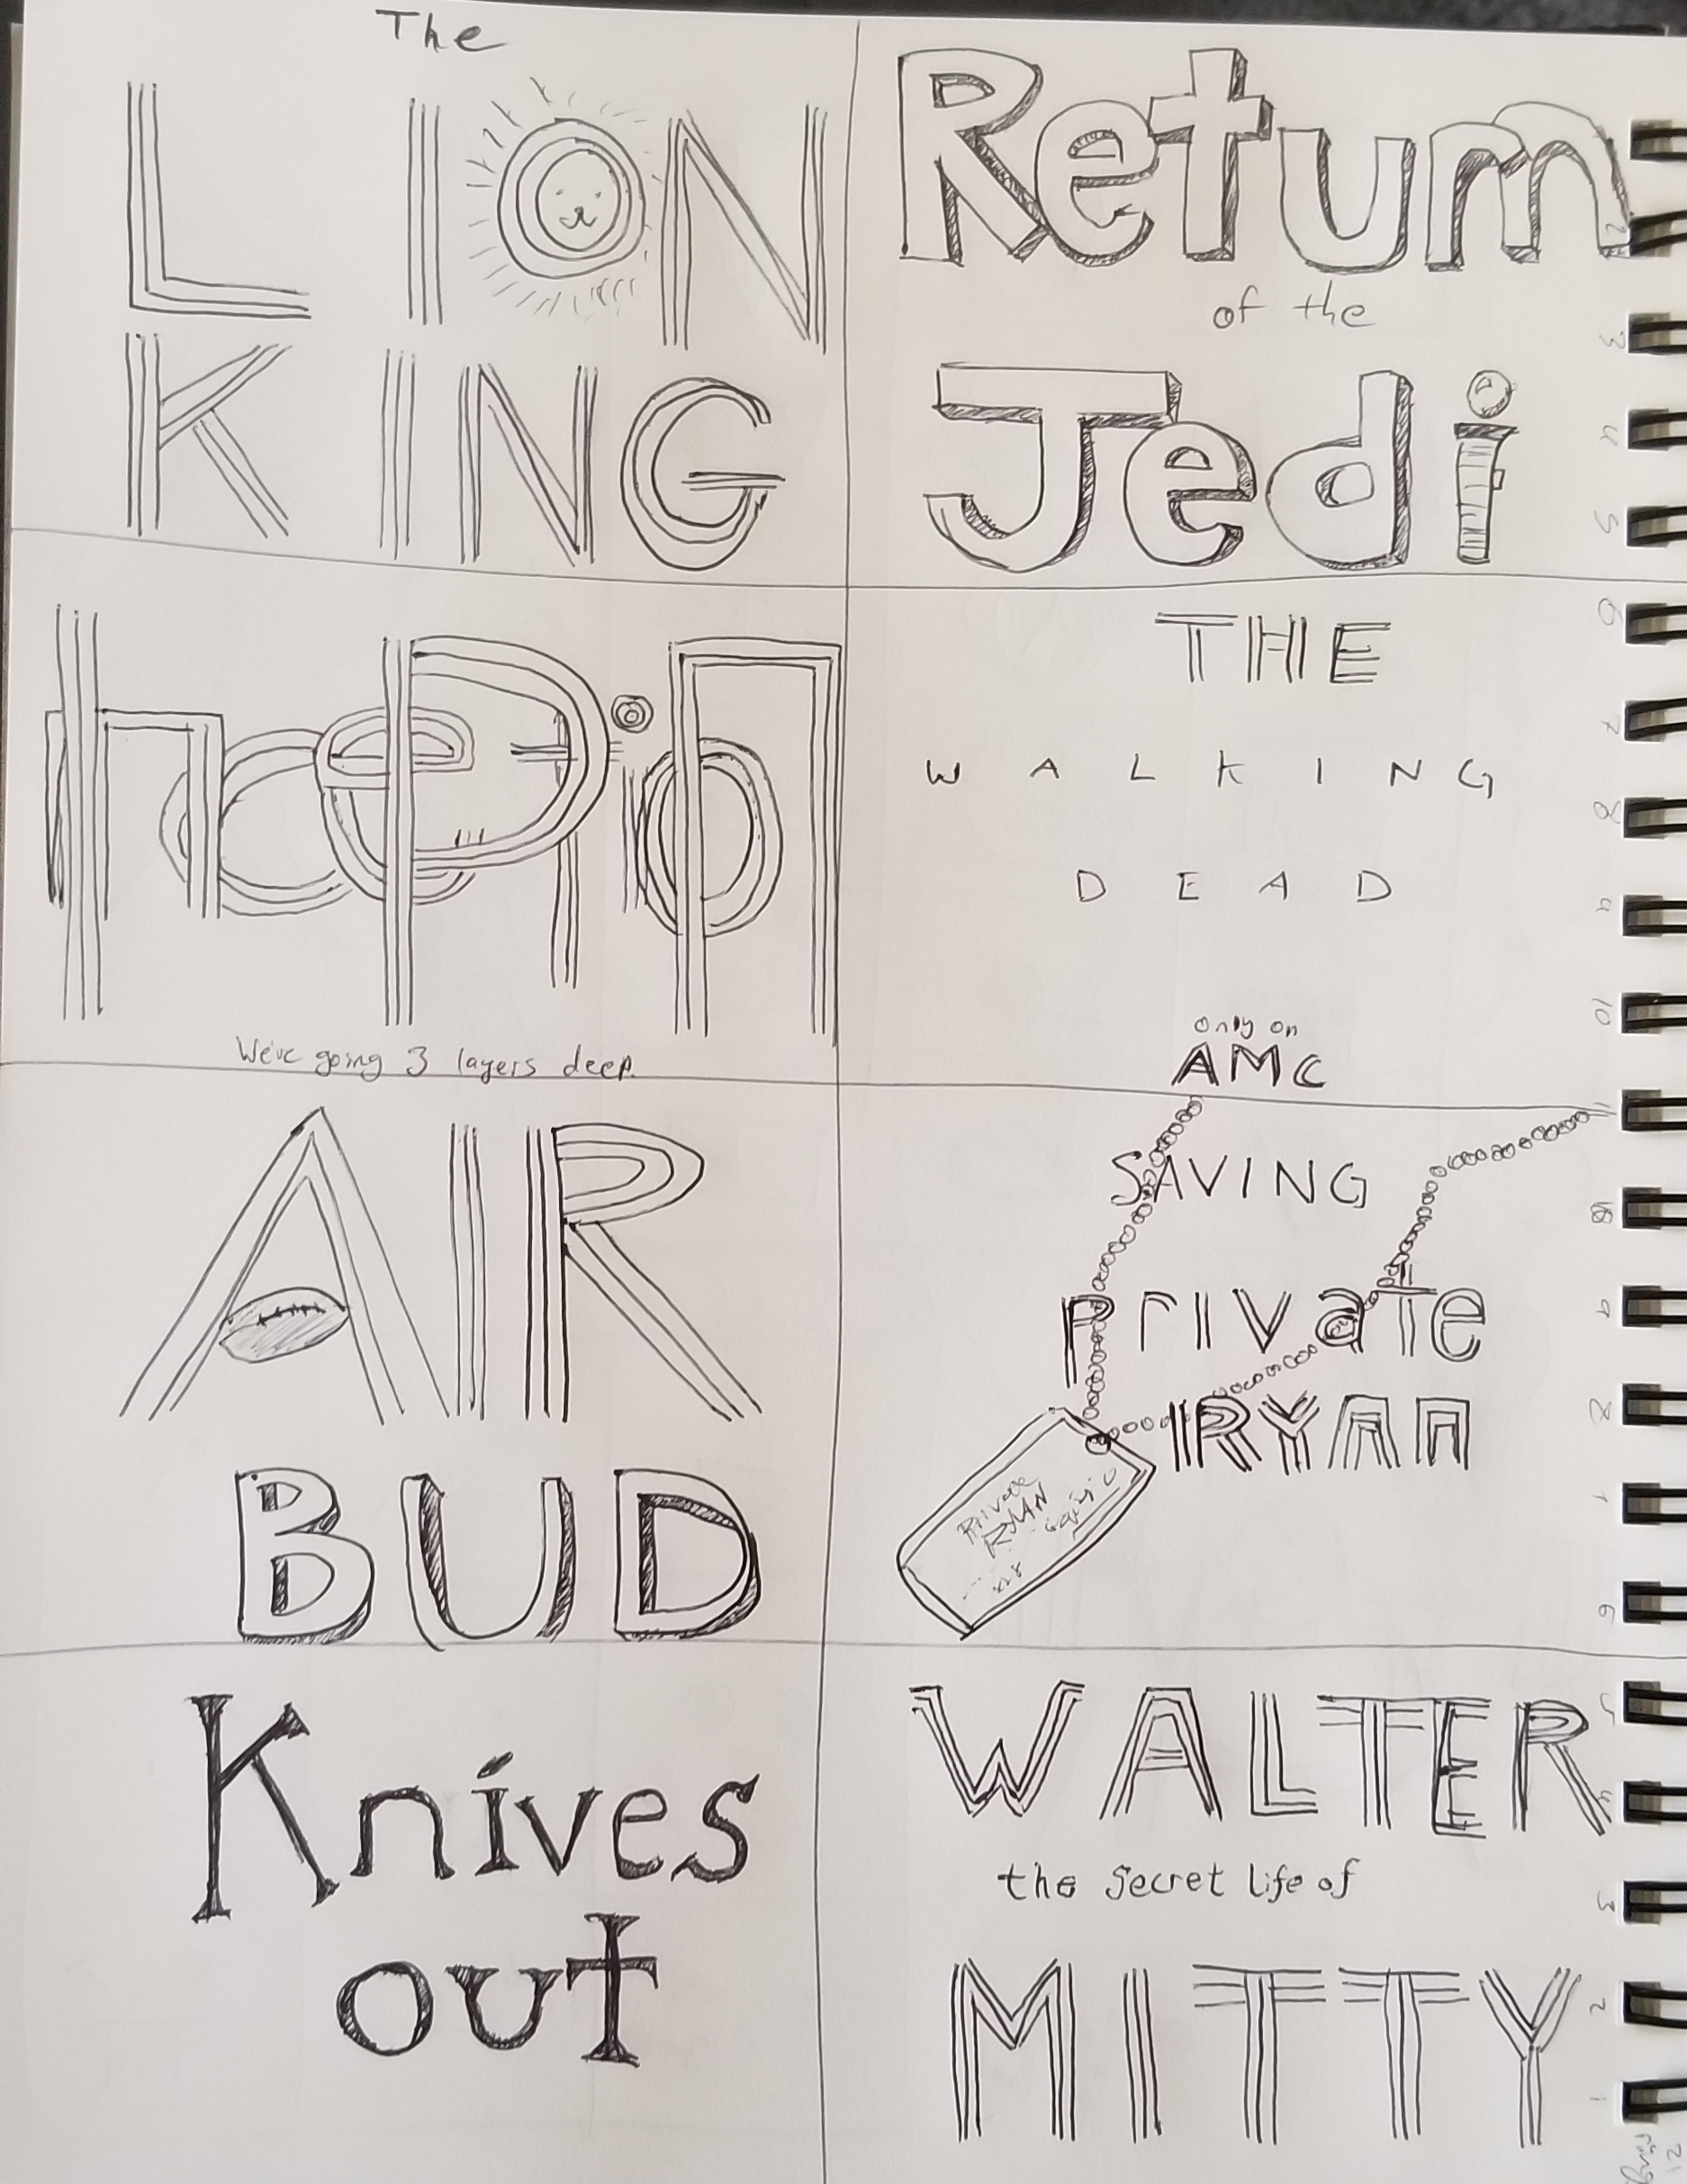 The
LION
KING
Return
of the
Jedi
We're going 3 layers deep.
THE
WALKING
DEAD
only on
AMC
AIR
BUD
SAVING
Private
RYAN
Private
RYAN
Knives
out
WALTER
the secret life of
MITTY